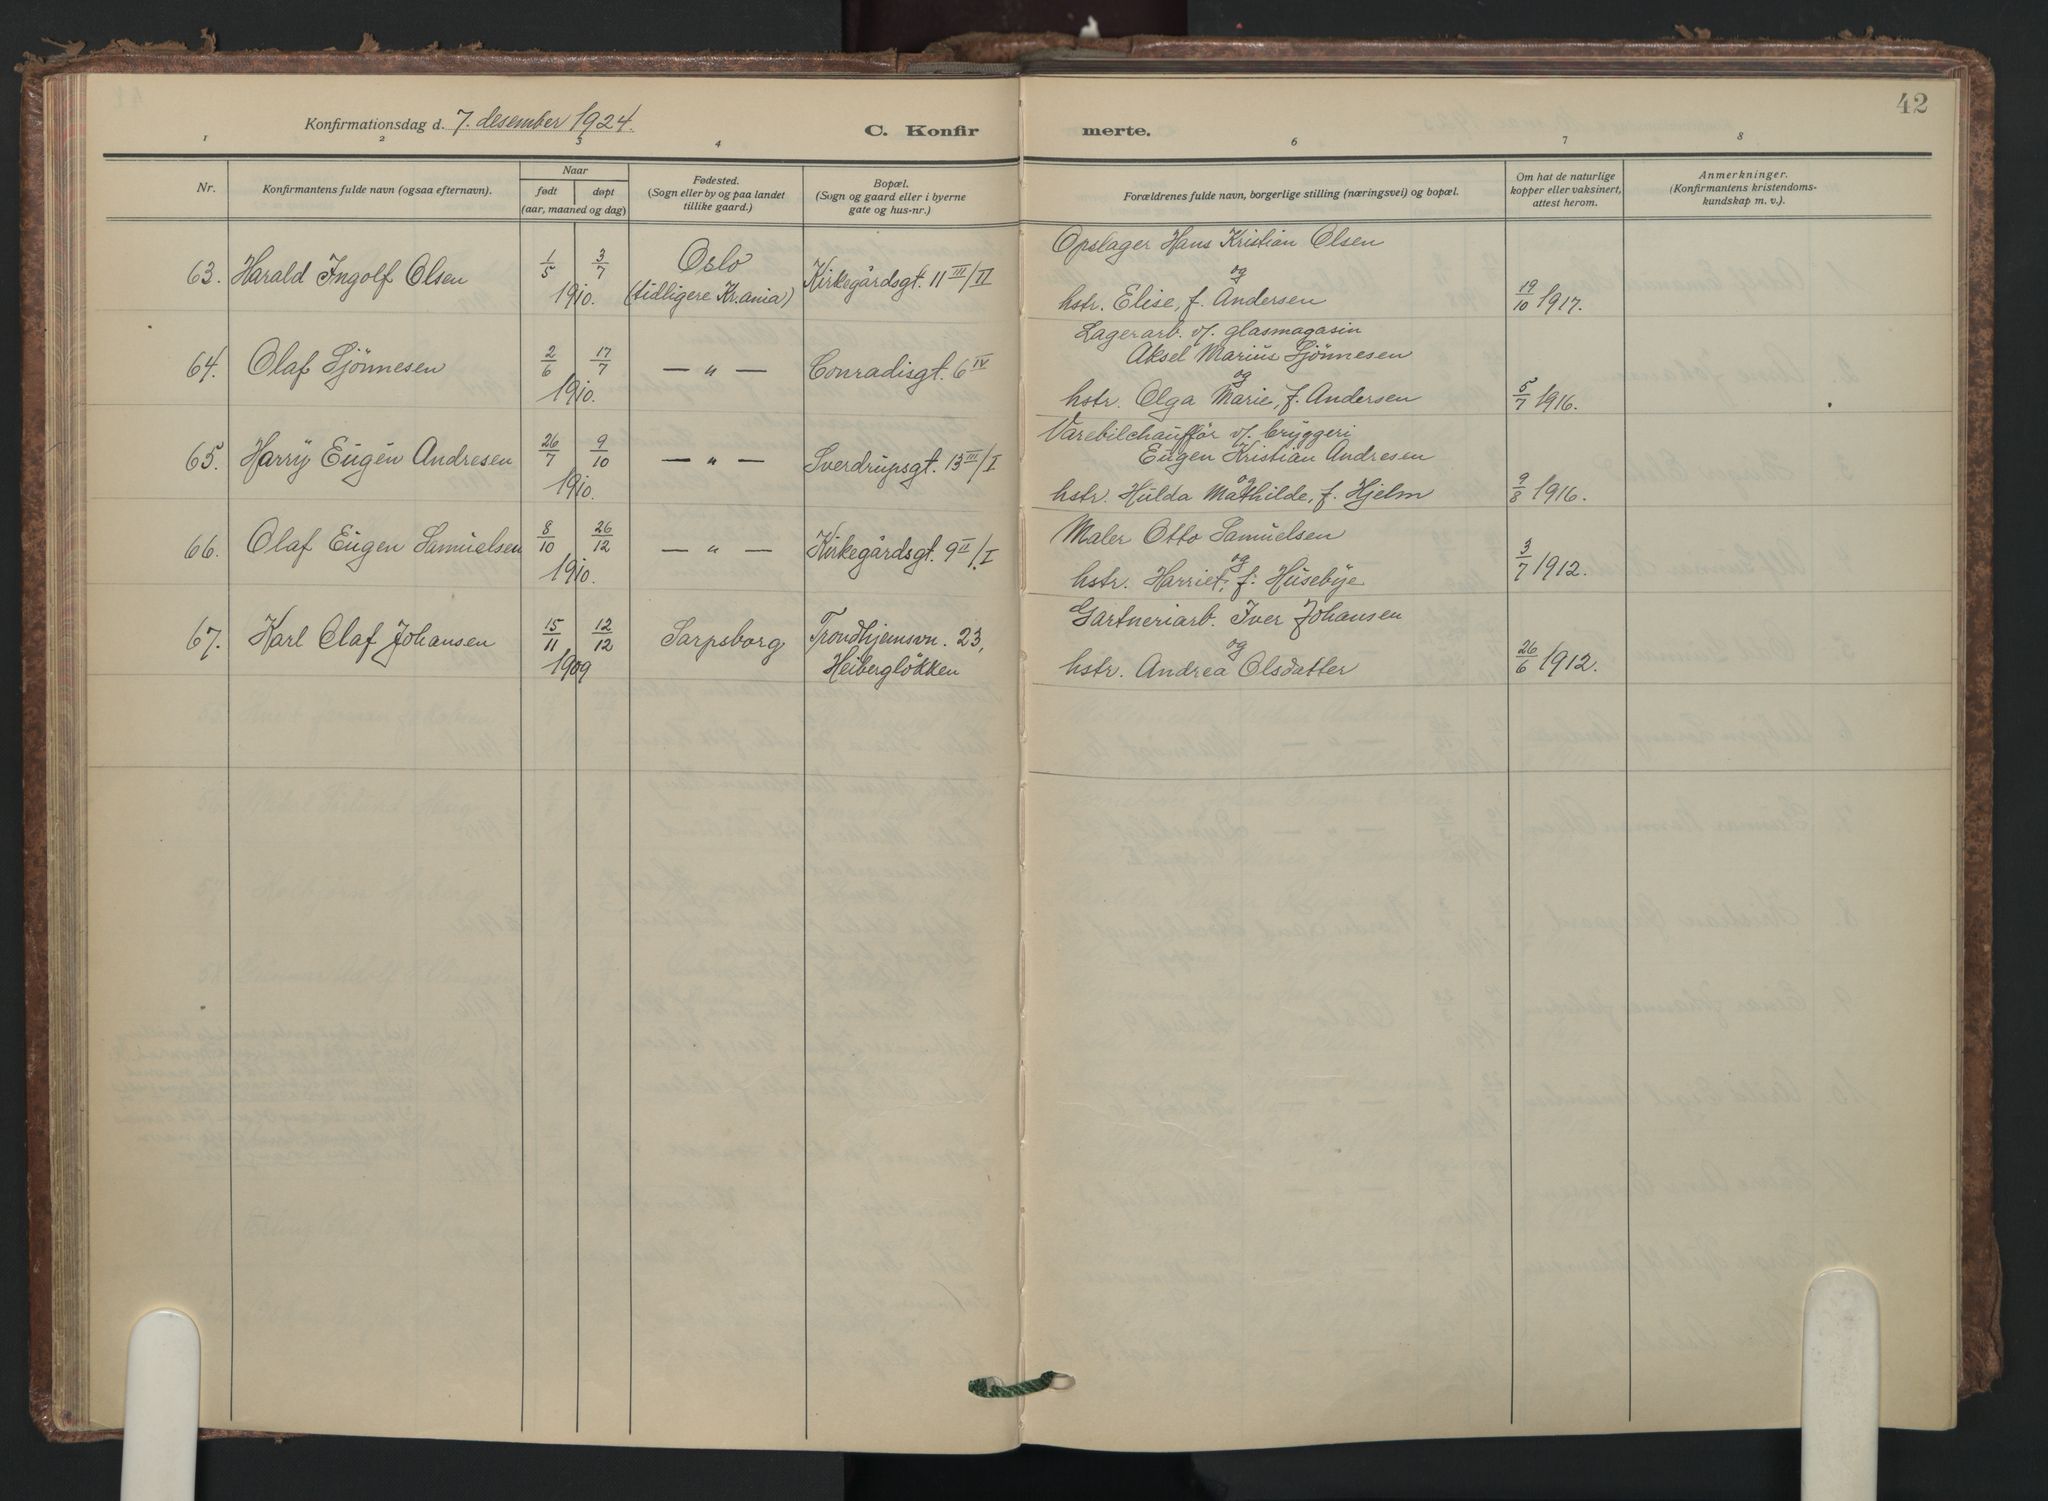 42
Konfirmationsdag d. 7. desember 1924.
C. Konfirmerte.
1 2 3 4 6 7 8
Nr.
Konfirmantens fulde navn (ogsaa efternavn).
Naar
født døpt
(aar, maaned og dag)
Fødested.
(Sogn eller by og paa landet
tillike gaard.)
Bopæl.
(Sogn og gaard eller i byerne
gate og hus-nr.)
Forældrenes fulde navn, borgerlige stilling (næringsvei) og bopæl.
Om hat de naturlige
kopper eller vaksinert,
attest herom.
Anmerkninger.
(Konfirmantens kristendoms-
kundskap m. v.).
63. Harald Ingolf Olsen 1/5 3/7 1910. Oslo
(tidligere Kr.ania)
Kirkegårdsgt. 11 III/II
Opslager Hans Kristian Olsen
og
hstr. Elise, f. Andersen
19/10 1917.
64. Olaf Sjönnesen 2/6 17/7 1910. — " — Conradisgt. 6 IV
Lagerarb. v/. glasmagasin
Aksel Marius Sjönnesen
og
hstr. Olga Marie, f. Andersen
5/7 1916.
65. Harry Eugen Andresen 26/7 9/10 1910. — " — Sverdrupsgt. 13 III/I
Varebilchauffør v/. bryggeri
Eugen Kristian Andresen
og
hstr. Hulda Mathilde, f. Hjelm
9/8 1916.
66. Olaf Eugen Samuelsen 8/10 26/12 1910. — " — Kirkegårdsgt. 9 II/I
Maler Otto Samuelsen
og
hstr. Harriet, f. Husebye
3/7 1912.
67. Karl Olaf Johansen 15/11 12/12 1909 Sarpsborg Trondhjemsvn. 23,
Heibergløkken
Gartneriarb. Iver Johansen
og
hstr. Andrea Olsdatter
26/6 1912.